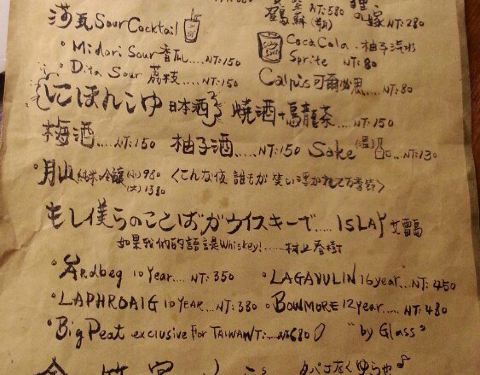 NT: 580
NT: 280
Sour Cocktail
Midori Sour 香瓜 ..... NT: 150
Coca Cola . 柚子汽水
Sprite NT: 80
Dita Sour 荔枝 ..... NT: 150
Calpis 可爾必思 ..... NT: 80
にほんしゅ 日本酒 燒酒+烏龍茶 .... NT: 150
梅酒 .... NT: 150 柚子酒 ..... NT: 150 Sake (溫) .. NT: 130
月山 純米吟釀 (小) 980
(大) 1380
もし僕らのことばがウイスキーで..... ISLAY 艾雷島
如果我們的語言是Whiskey!...... 村上春樹
Ardbeg 10 Year.... NT: 350
LAGAVULIN 16 year.. NT: 450
LAPHROAIG 10 YEAR... NT: 380
BOWMORE 12 year.. NT: 480
Big Peat exclusive For TAIWAN NT: 680
"by Glass"